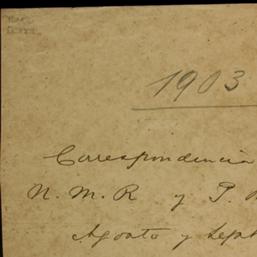 1903
Correspondencia
N. M. R y P.
Agosto y Sept